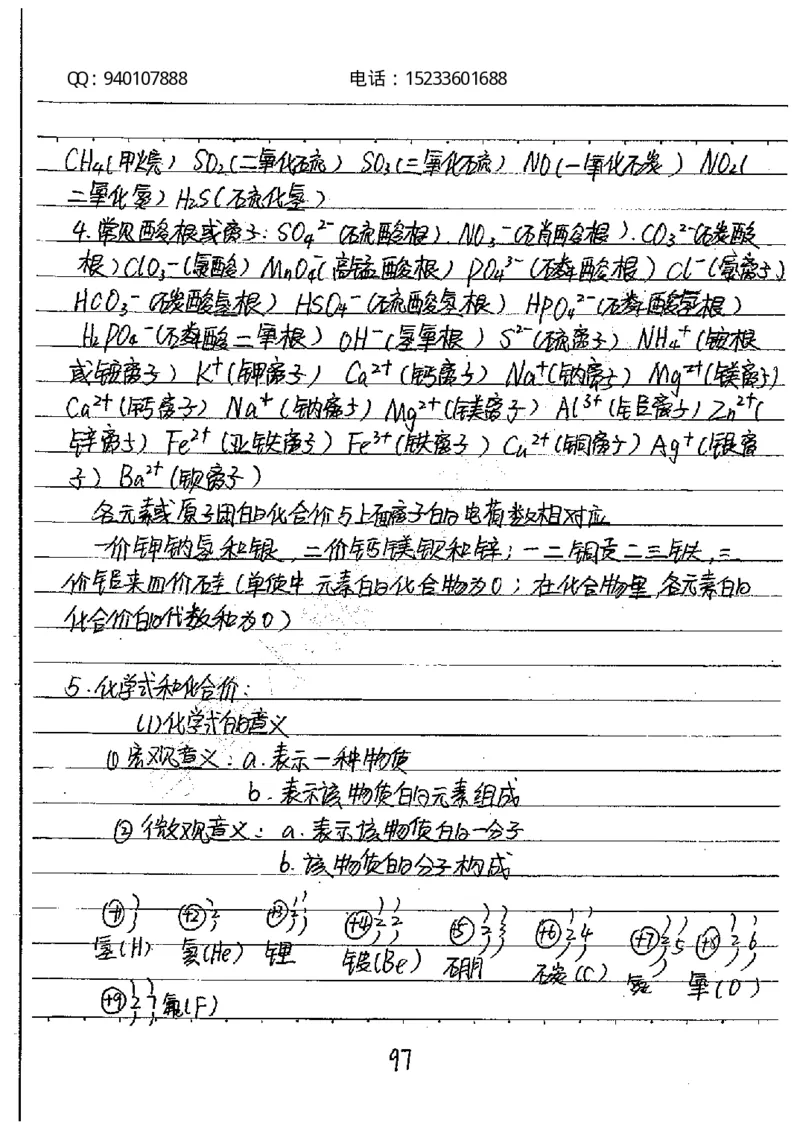 QQ：940107888 电话：15233601688
CH₄(甲烷) SO₂(二氧化硫) SO₃(三氧化硫) NO(一氧化碳) NO₂(
二氧化氮) H₂S(硫化氢)
4.常见酸根或离子：SO₄²⁻(硫酸根).NO₃⁻(硝酸根).CO₃²⁻(碳酸
根)ClO₃⁻(氯酸) MnO₄⁻(高锰酸根) PO₄³⁻(磷酸根) Cl⁻(氯离子)
HCO₃⁻(碳酸氢根) HSO₄⁻(硫酸氢根) HPO₄²⁻(磷酸氢根)
H₂PO₄⁻(磷酸二氢根) OH⁻(氢氧根) S²⁻(硫离子) NH₄⁺(铵根
或铵离子) K⁺(钾离子) Ca²⁺(钙离子) Na⁺(钠离子) Mg²⁺(镁离子)
Ca²⁺(钙离子) Na⁺(钠离子) Mg²⁺(镁离子) Al³⁺(铝离子) Zn²⁺(
锌离子) Fe²⁺(亚铁离子) Fe³⁺(铁离子) Cu²⁺(铜离子) Ag⁺(银离
子) Ba²⁺(钡离子)
各元素或原子团的化合价与上面离子的电荷数相对应
一价钾钠氢和银，二价钙镁钡和锌；一二铜汞二三铁，三
价铝来四价硅(单质中元素的化合物为0；在化合物里,各元素的
化合价的代数和为0)
5.化学式和化合价：
(1)化学式的意义
①宏观意义：a.表示一种物质
b.表示该物质的元素组成
②微观意义：a.表示该物质的一分子
b.该物质的分子构成
+1 1 +2 2 +3 2 1 +4 2 2 +5 2 3 +6 2 4 +7 2 5 +8 2 6
氢(H) 氦(He) 锂 铍(Be) 硼 碳(C) 氮 氧(O)
+9 2 7 氟(F)
97